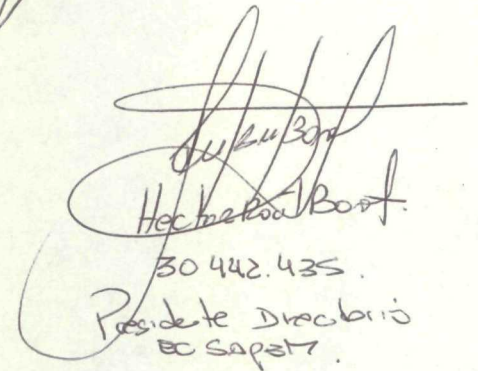 Hector Raúl Boot.
30 442.435.
Presidente Directorio
EC SAPEM.